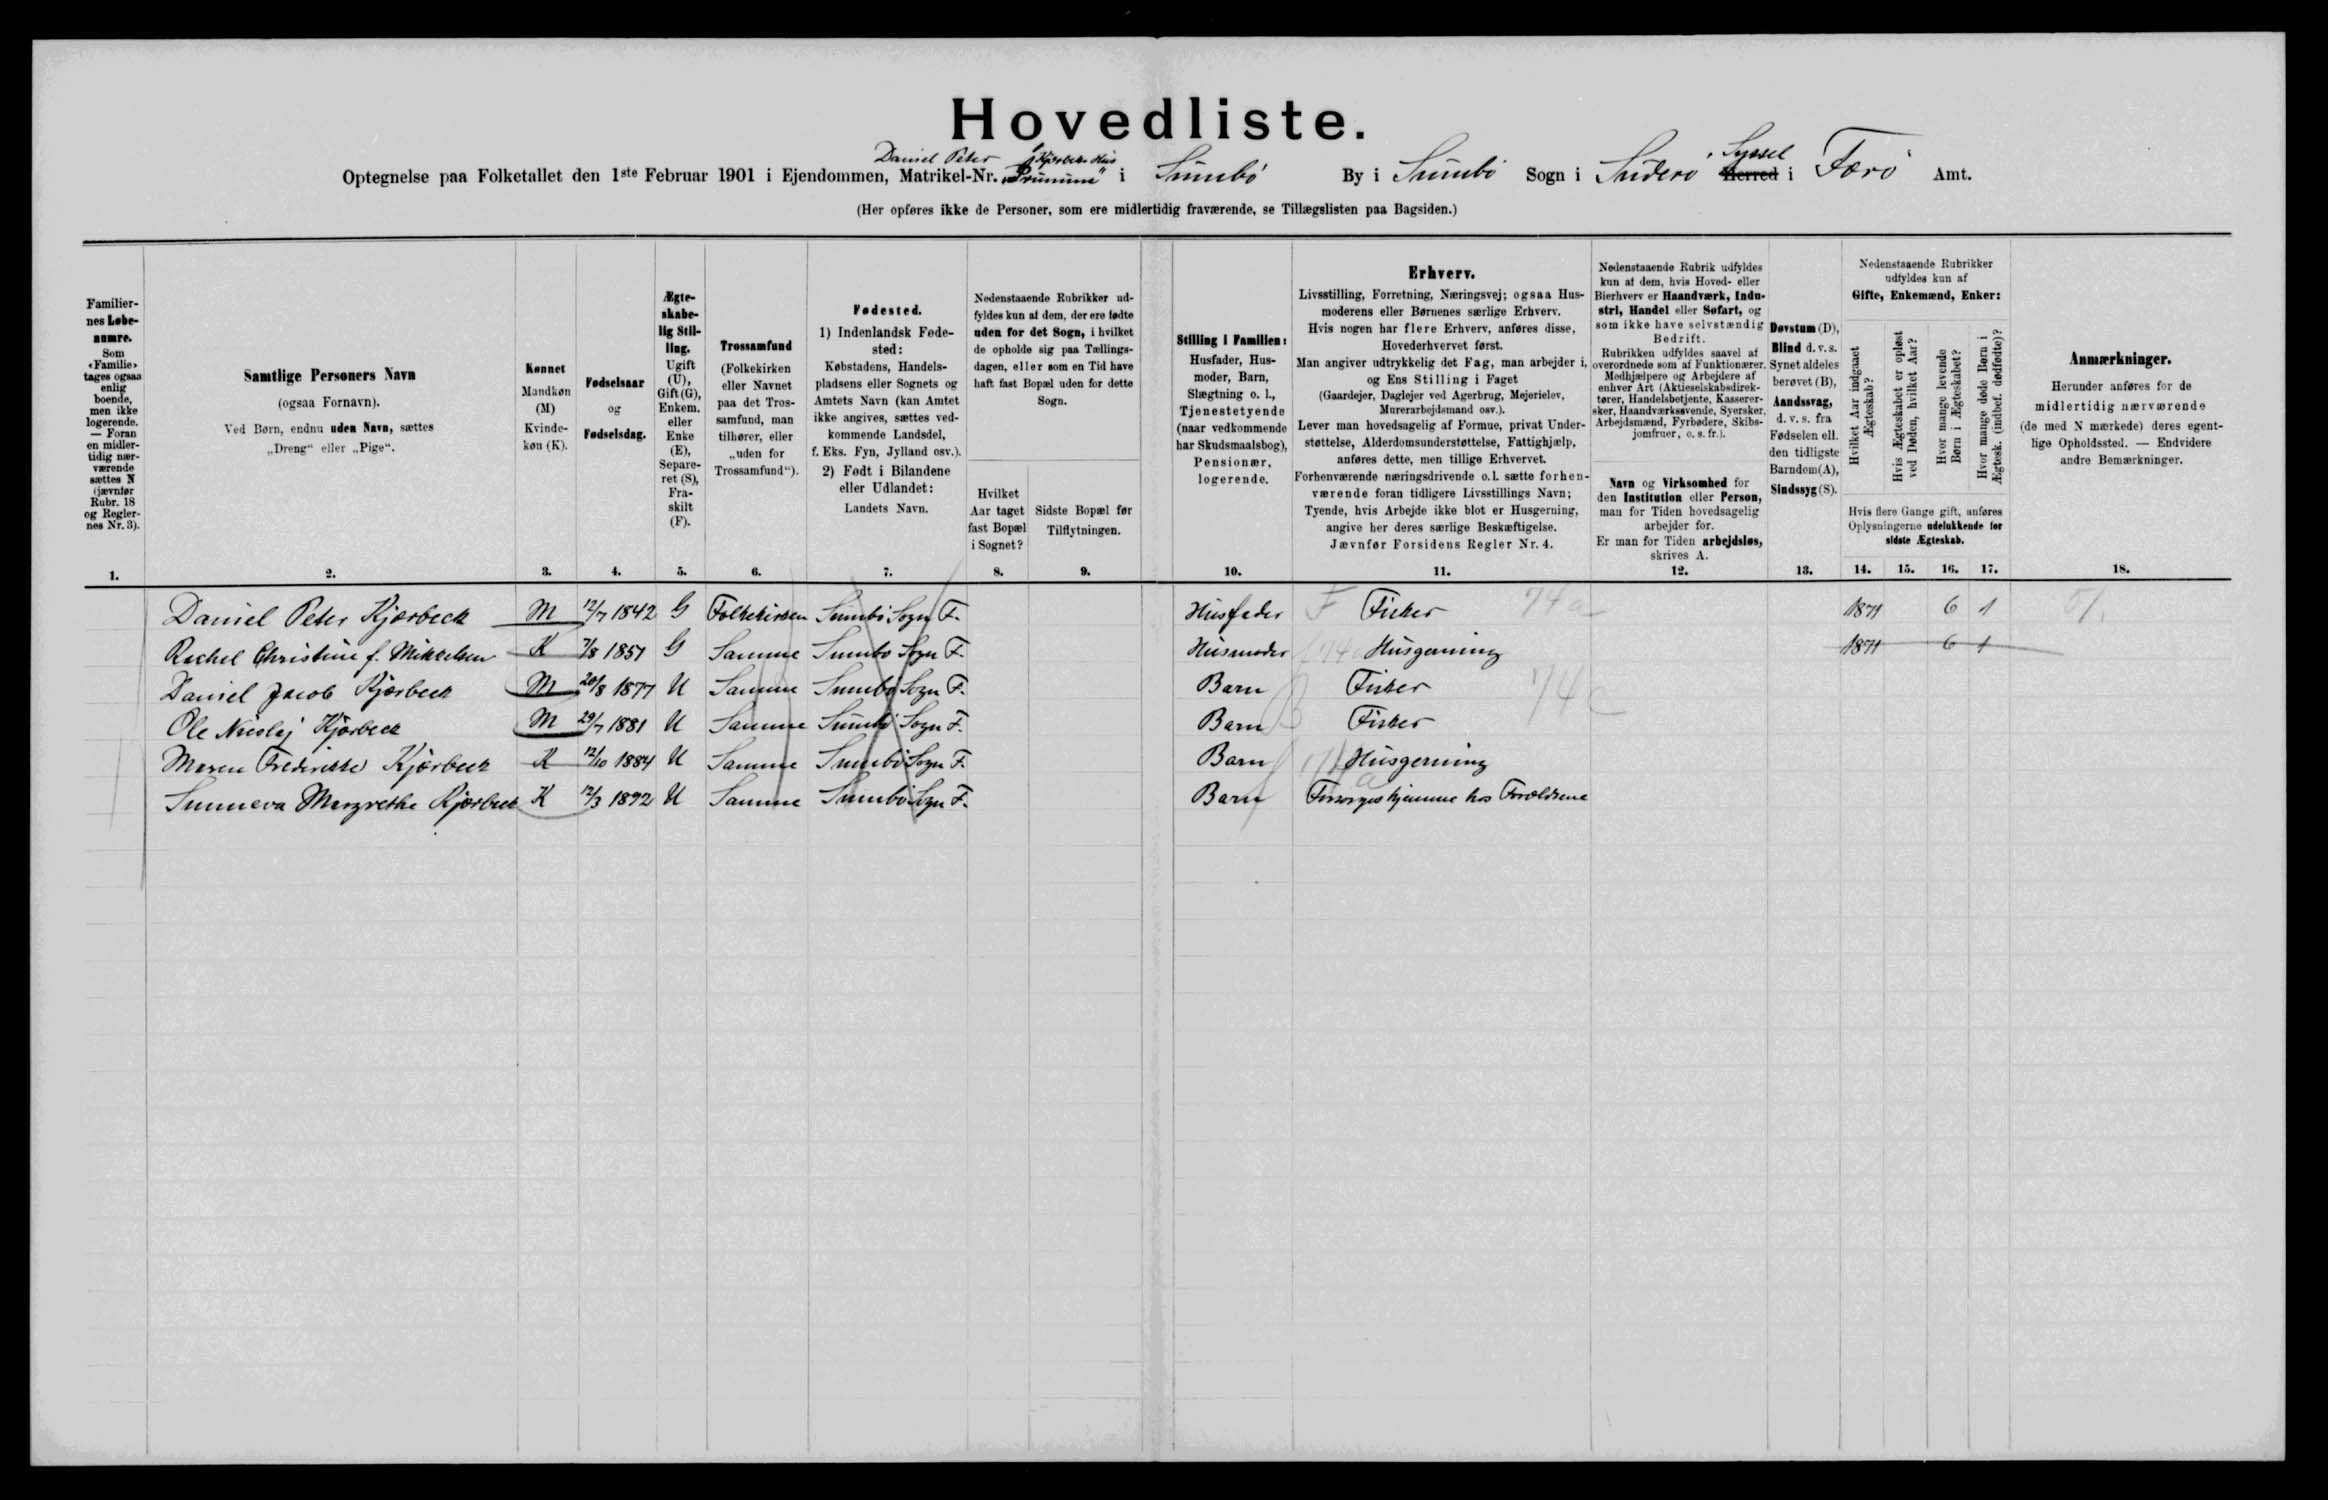 Hovedliste.
Daniel Peter Kjærbeks Hus
Optegnelse paa Folketallet den 1ste Februar 1901 i Ejendommen, Matrikel-Nr. i Sumbø By i Sumbø Sogn i Suderø Syssel Herred i Færø Amt.
(Her opføres ikke de Personer, som ere midlertidig fraværende, se Tillægslisten paa Bagsiden.)
Familiernes Løbenumre. Som «Familie» tages ogsaa enlig boende, men ikke logerende. — Foran en midlertidig nærværende sættes N (jævnfør Rubr. 18 og Reglernes Nr. 3).
Samtlige Personers Navn (ogsaa Fornavn). Ved Børn, endnu uden Navn, sættes „Dreng“ eller „Pige“.
Kønnet Mandkøn (M) Kvindekøn (K).
Fødselsaar og Fødselsdag.
Ægteskabelig Stilling. Ugift (U), Gift (G), Enkem. eller Enke (E), Separeret (S), Fraskilt (F).
Trossamfund (Folkekirken eller Navnet paa det Trossamfund, man tilhører, eller „uden for Trossamfund“).
Fødested. 1) Indenlandsk Fødested: Købstadens, Handelspladsens eller Sognets og Amtets Navn (kan Amtet ikke angives, sættes vedkommende Landsdel, f. Eks. Fyn, Jylland osv.). 2) Født i Bilandene eller Udlandet: Landets Navn.
Nedenstaaende Rubrikker udfyldes kun af dem, der ere fødte uden for det Sogn, i hvilket de opholde sig paa Tællingsdagen, eller som en Tid have haft fast Bopæl uden for dette Sogn.
Hvilket Aar taget fast Bopæl i Sognet?
Sidste Bopæl før Tilflytningen.
Stilling i Familien: Husfader, Husmoder, Barn, Slægtning o. l., Tjenestetyende (naar vedkommende har Skudsmaalsbog), Pensionær, logerende.
Erhverv.
Livsstilling, Forretning, Næringsvej; ogsaa Husmoderens eller Børnenes særlige Erhverv.
Hvis nogen har flere Erhverv, anføres disse, Hovederhvervet først.
Man angiver udtrykkelig det Fag, man arbejder i, og Ens Stilling i Faget (Gaardejer, Daglejer ved Agerbrug, Mejerielev, Murerarbejdsmand osv.).
Lever man hovedsagelig af Formue, privat Understøttelse, Alderdomsunderstøttelse, Fattighjælp, anføres dette, men tillige Erhvervet.
Forhenværende næringsdrivende o. l. sætte forhenværende foran tidligere Livsstillings Navn; Tyende, hvis Arbejde ikke blot er Husgerning, angive her deres særlige Beskæftigelse.
Jævnfør Forsidens Regler Nr. 4.
Nedenstaaende Rubrik udfyldes kun af dem, hvis Hoved- eller Bierhverv er Haandværk, Industri, Handel eller Søfart, og som ikke have selvstændig Bedrift.
Rubrikken udfyldes saavel af overordnede som af Funktionærer, Medhjælpere og Arbejdere af enhver Art (Aktieselskabsdirektører, Handelsbetjente, Kasserersker, Haandværkssvende, Syersker, Arbejdsmænd, Fyrbødere, Skibsjomfruer, o. s. fr.).
Navn og Virksomhed for den Institution eller Person, man for Tiden hovedsagelig arbejder for.
Er man for Tiden arbejdsløs, skrives A.
Døvstum (D), Blind d. v. s. Synet aldeles berøvet (B), Aandssvag, d. v. s. fra Fødselen ell. den tidligste Barndom (A), Sindssyg (S).
Nedenstaaende Rubrikker udfyldes kun af Gifte, Enkemænd, Enker:
Hvilket Aar indgaaet Ægteskab?
Hvis Ægteskabet er opløst ved Døden, hvilket Aar?
Hvor mange levende Børn i Ægteskabet?
Hvor mange døde Børn i Ægtesk. (indbef. dødfødte)?
Hvis flere Gange gift, anføres Oplysningerne udelukkende for sidste Ægteskab.
Anmærkninger.
Herunder anføres for de midlertidig nærværende (de med N mærkede) deres egentlige Opholdssted. — Endvidere andre Bemærkninger.
1. 2. 3. 4. 5. 6. 7. 8. 9. 10. 11. 12. 13. 14. 15. 16. 17. 18.
Daniel Peter Kjærbeck M 12/7 1842 G Folkekirken Sumbø Sogn F. Husfader F Fisker 74a 1871 6 1
Rachel Christine f. Mikkelsen K 7/8 1851 G Samme Sumbø Sogn F. Husmoder Husgerning 1871 6 1
Daniel Jacob Kjærbeck M 20/8 1877 U Samme Sumbø Sogn F. Barn Fisker
Ole Nicolaj Kjærbeck M 29/7 1881 U Samme Sumbø Sogn F. Barn Fisker
Maren Frederikke Kjærbeck K 12/10 1884 U Samme Sumbø Sogn F. Barn Husgerning
Sunneva Margrethe Kjærbeck K 12/3 1892 U Samme Sumbø Sogn F. Barn Forsørges hjemme hos Forældrene